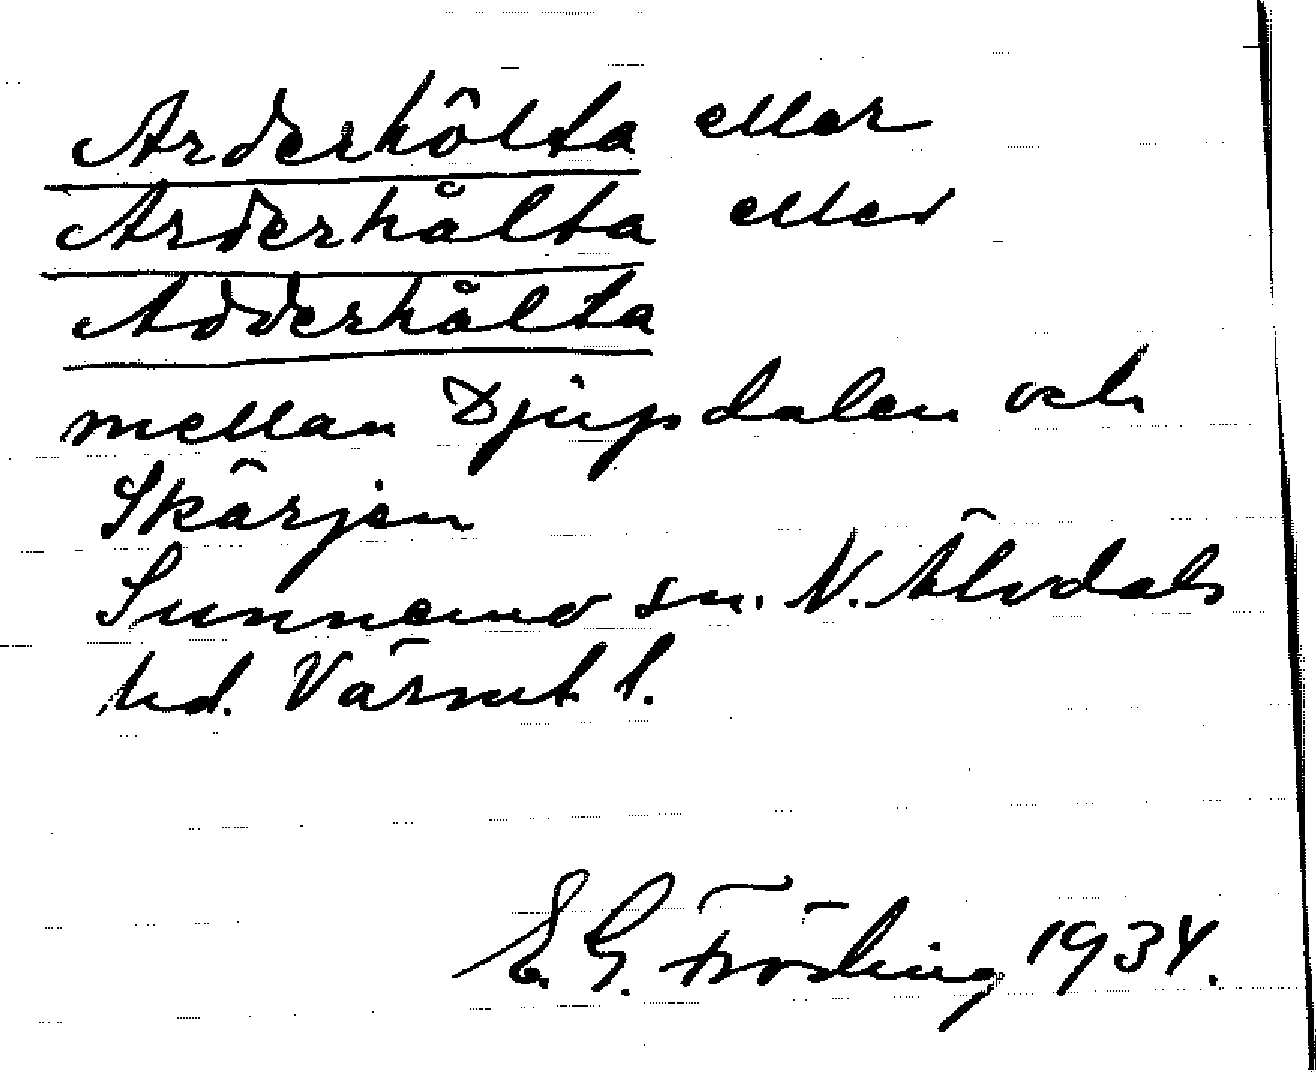 Arderhölta eller
Arderhålta eller
Adderhålta
mellan Djupdalen och
Skärjen
Sunnemo sn. N. Älvdals
hd. Värml l.
E. G. Fröding 1934.